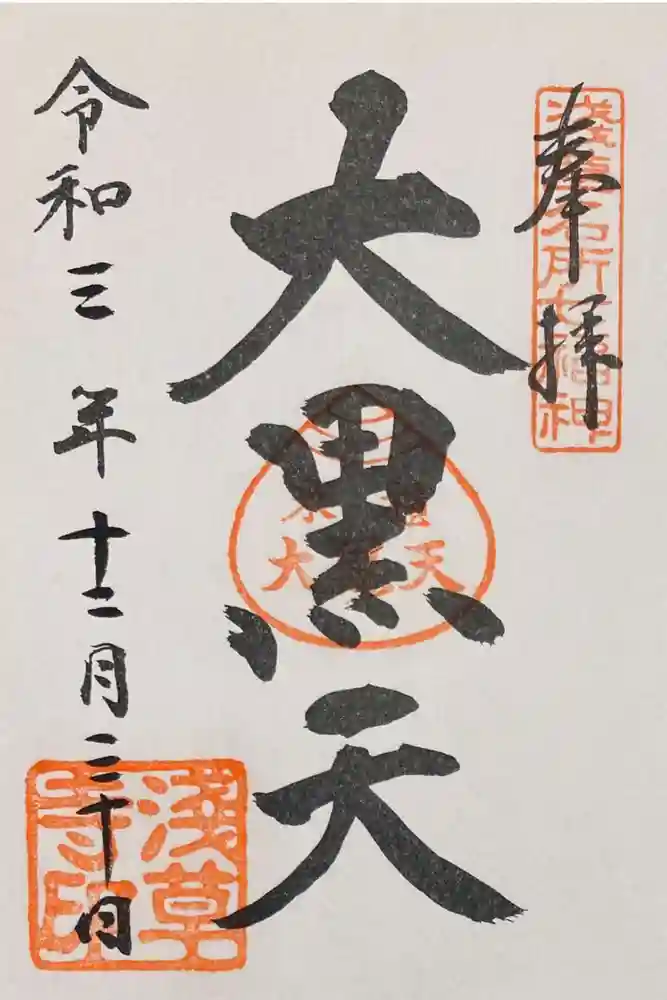 奉拝
淺草名所七福神
大黒天
令和三年十二月三十日
淺草寺印